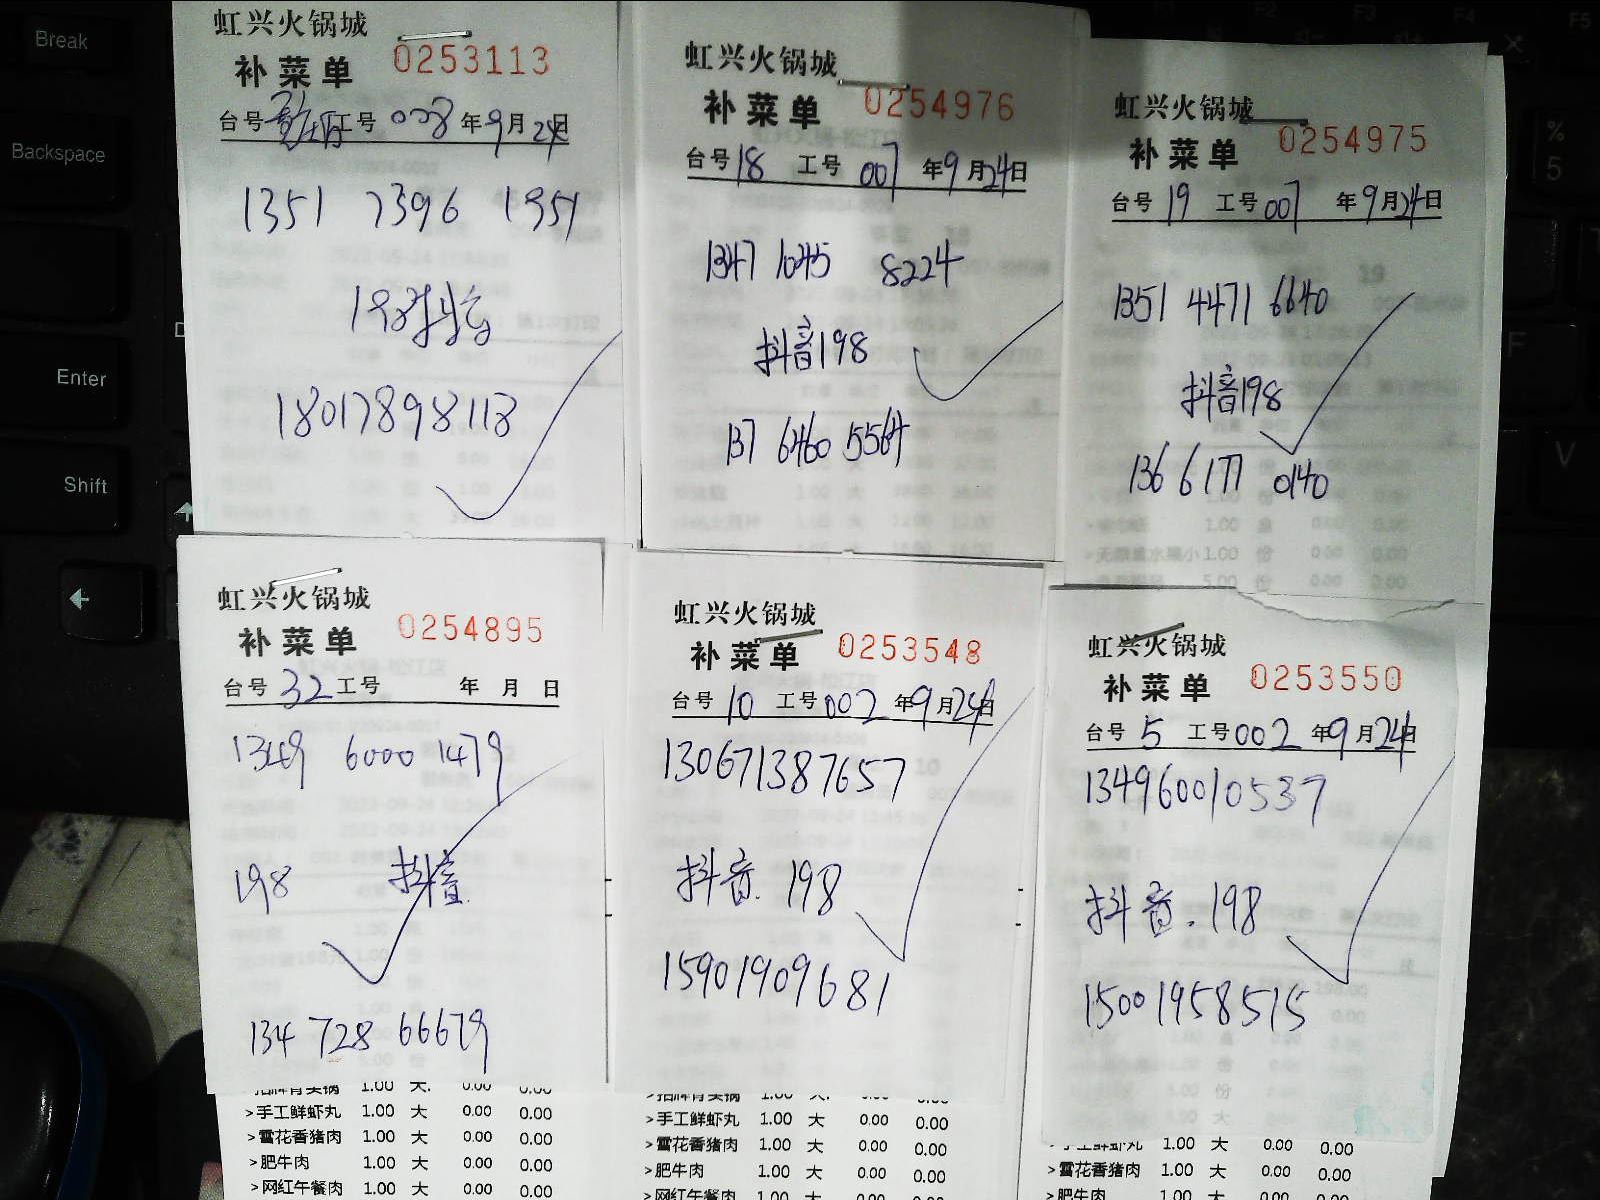 虹兴火锅城
补菜单 0253113
台号 工号 008 年9月24日
1351 7396 1951
198抖音
18017898113
虹兴火锅城
补菜单 0254976
台号18 工号 007 年9月24日
1347 1045 8224
抖音198
137 6460 5564
虹兴火锅城
补菜单 0254975
台号 19 工号 007 年9月24日
1351 4471 6640
抖音198
136 6177 0140
虹兴火锅城
补菜单 0254895
台号 32 工号 年 月 日
1349 6000 1479
198 抖音
134 728 66679
虹兴火锅城
补菜单 0253548
台号 10 工号 002 年9月24日
130671387657
抖音. 198
15901909681
虹兴火锅城
补菜单 0253550
台号 5 工号 002 年9月24日
134960010537
抖音. 198
15001958515
>手工鲜虾丸 1.00 大 0.00 0.00
>雪花香猪肉 1.00 大 0.00 0.00
>肥牛肉 1.00 大 0.00 0.00
>网红午餐肉 1.00 大 0.00 0.00
>手工鲜虾丸 1.00 大 0.00 0.00
>雪花香猪肉 1.00 大 0.00 0.00
>肥牛肉 1.00 大 0.00 0.00
>网红午餐肉 1.00 大 0.00 0.00
>手工鲜虾丸 1.00 大 0.00 0.00
>雪花香猪肉 1.00 大 0.00 0.00
>肥牛肉 1.00 大 0.00 0.00
Break
Backspace
Enter
Shift
%
5
F
V